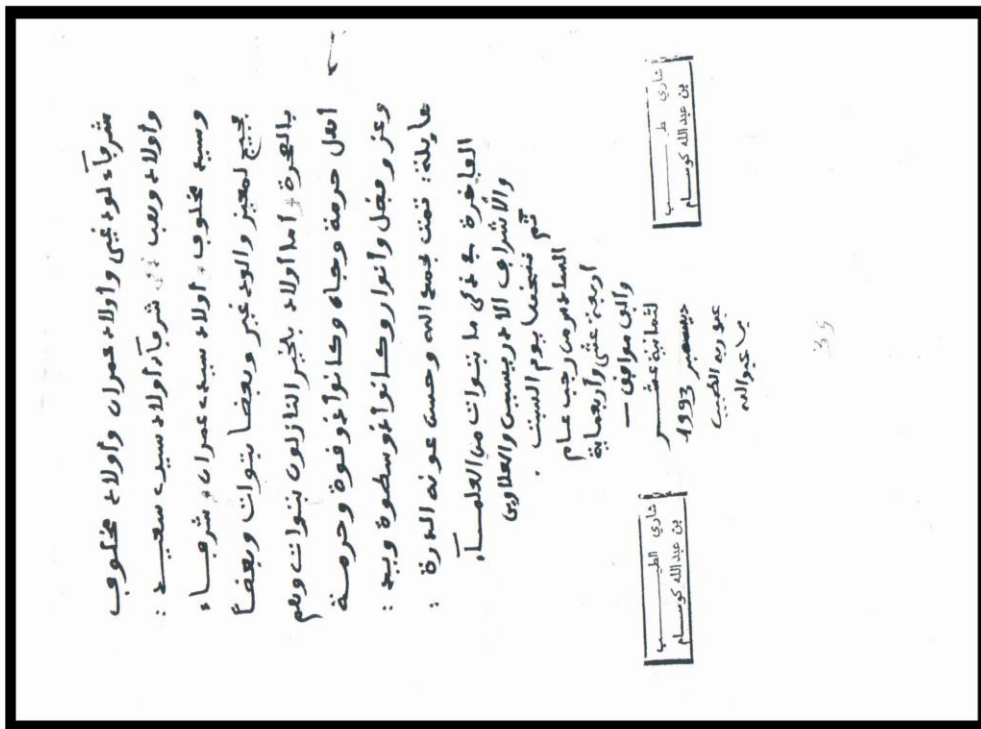 شرفاء لودغيي وأولاد عمران وأولاد مخلوف
وأولاد وهب شرفاء أولاد سيدي سعيد :
وسيد مخلوف، أولاد سيدي عمران، شرفاء
بفيج لمعيز والودغير وبعضا بتوات وبعضا
أما أولاد بالخير النازلون بتوات وهم
أهل حرمة وجاه وكانوا ذو قوة وحرمة
وعز وفضل وأنوار وكانوا ذو سطوة ويد :
عايلة : تمت بحمد الله وحسن عونه الدرة :
الفاخرة في ذكر ما بتوات من العلماء
والأشراف الادريسيين والعلاويين
تم نسخها يوم السبت .
السادس من رجب عام
أربعة عشر وأربعماية
وألف موافق –
لثمانية عشر
ديسمبر 1993
عبد ربه الطيب
بن عبد الله
شاري الطيب
بن عبد الله كوسام
شاري الطيب
بن عبد الله كوسام